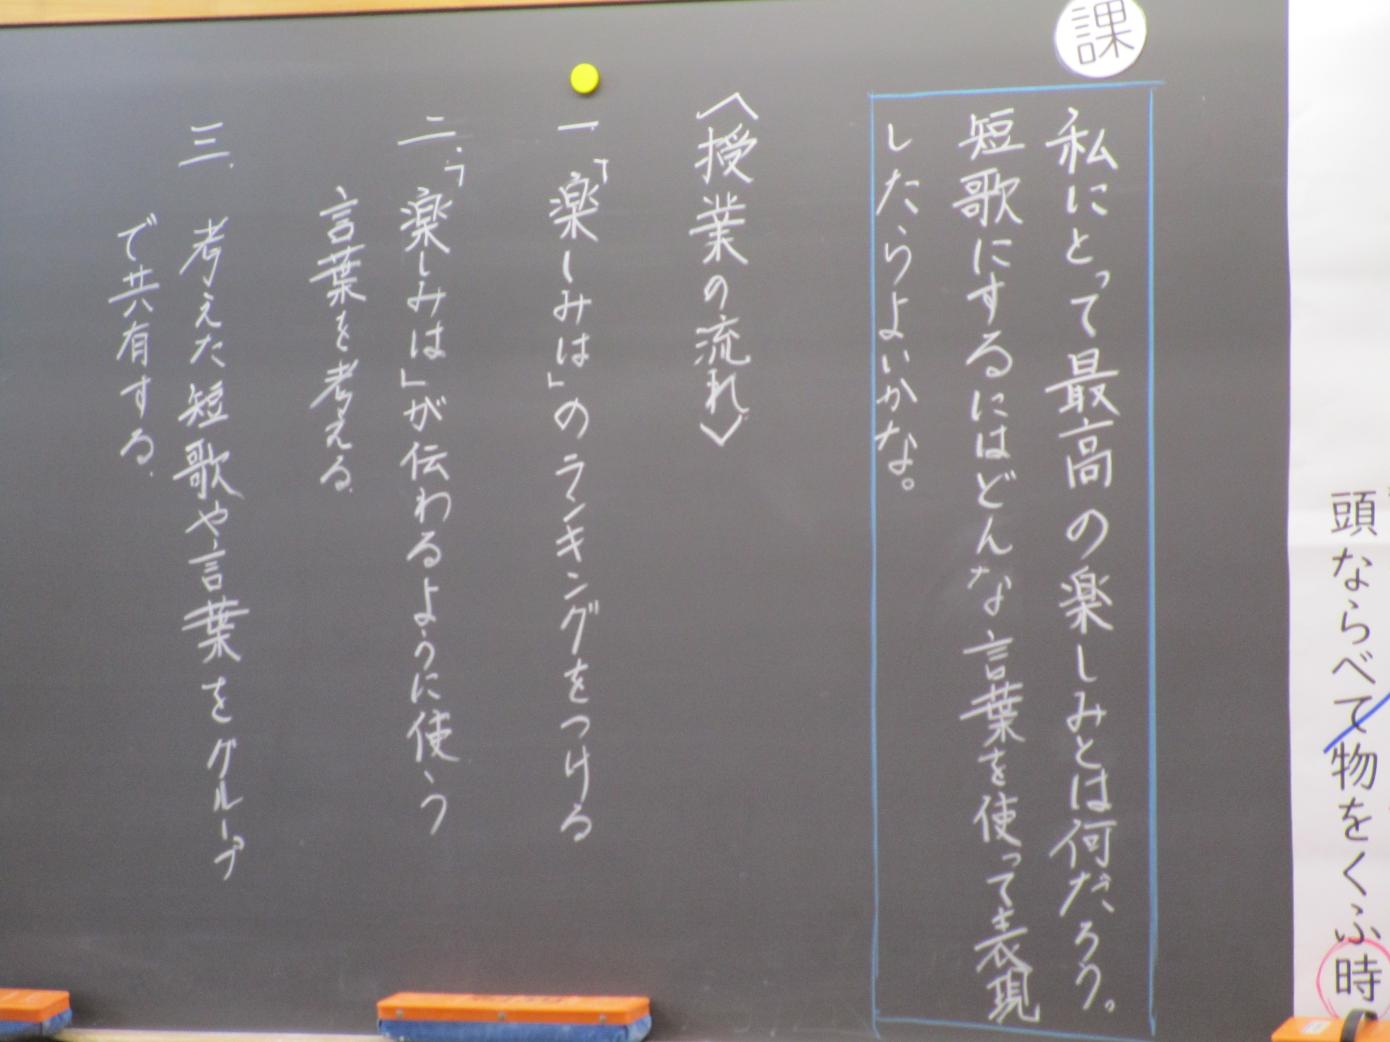 頭ならべて物をくふ時
課
私にとって最高の楽しみとは何だろう。
短歌にするにはどんな言葉を使って表現
したらよいかな。
〈授業の流れ〉
一、「楽しみは」のランキングをつける
二、「楽しみは」が伝わるように使う
言葉を考える。
三、考えた短歌や言葉をグループ
で共有する。